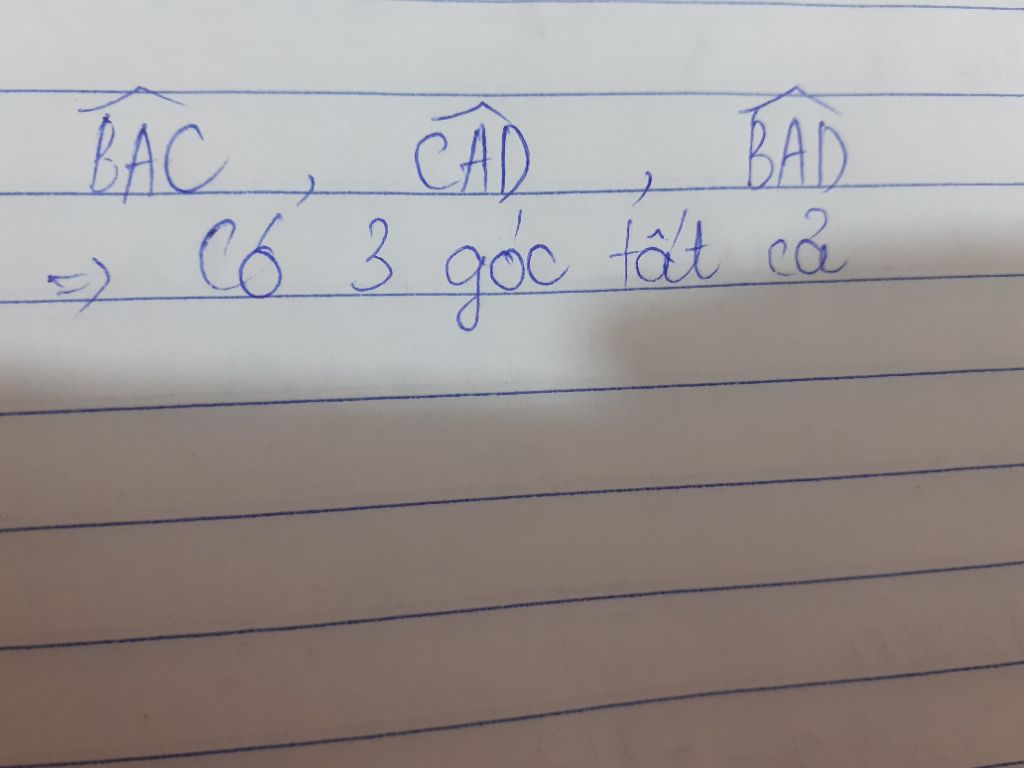 \widehat{BAC} , \widehat{CAD} , \widehat{BAD}
=> Có 3 góc tất cả